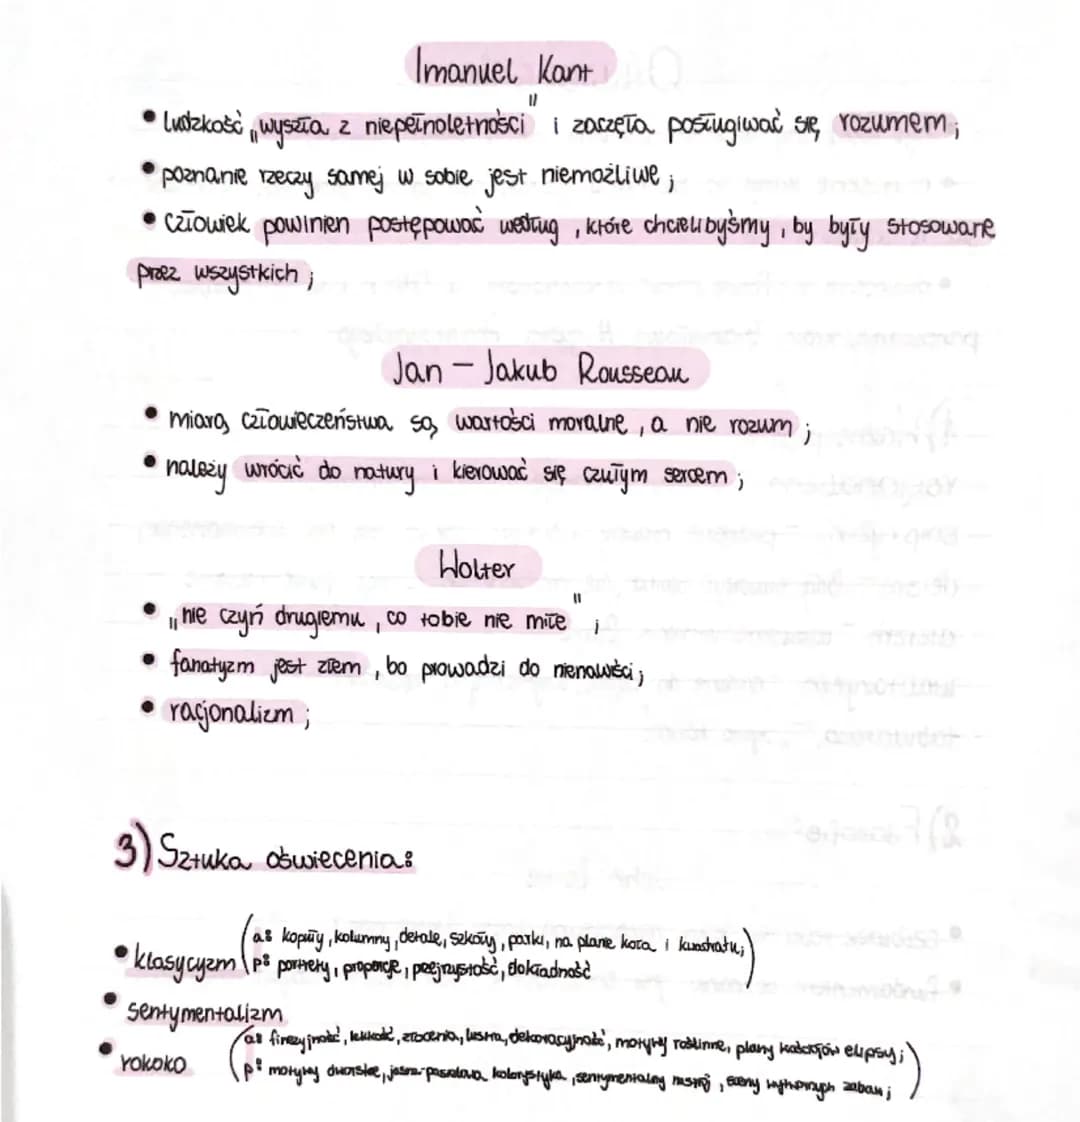 Imanuel Kant
• ludzkość „wyszła z niepełnoletności" i zaczęła posługiwać się rozumem;
• poznanie rzeczy samej w sobie jest niemożliwe;
• człowiek powinien postępować według, które chcielibyśmy, by były stosowane
przez wszystkich;
Jan - Jakub Rousseau
• miarą człowieczeństwa są wartości moralne, a nie rozum;
• należy wrócić do natury i kierować się czułym sercem;
Wolter
• „nie czyń drugiemu, co tobie nie miłe";
• fanatyzm jest złem, bo prowadzi do nienawiści;
• racjonalizm;
3) Sztuka oświecenia:
• klasycyzm (a: kopuły, kolumny, detale, szkoły, parki, na planie koła i kwadratu;
p: portrety, proporcje, przejrzystość, dokładność)
• sentymentalizm
• rokoko (a: finezyjność, lekkość, złocenia, lustra, dekoracyjność, motywy roślinne, plany kościołów elipsy;
p: motywy dworskie, jasna-pastelowa kolorystyka, sentymentalny nastrój, sceny wytwornych zabaw;)